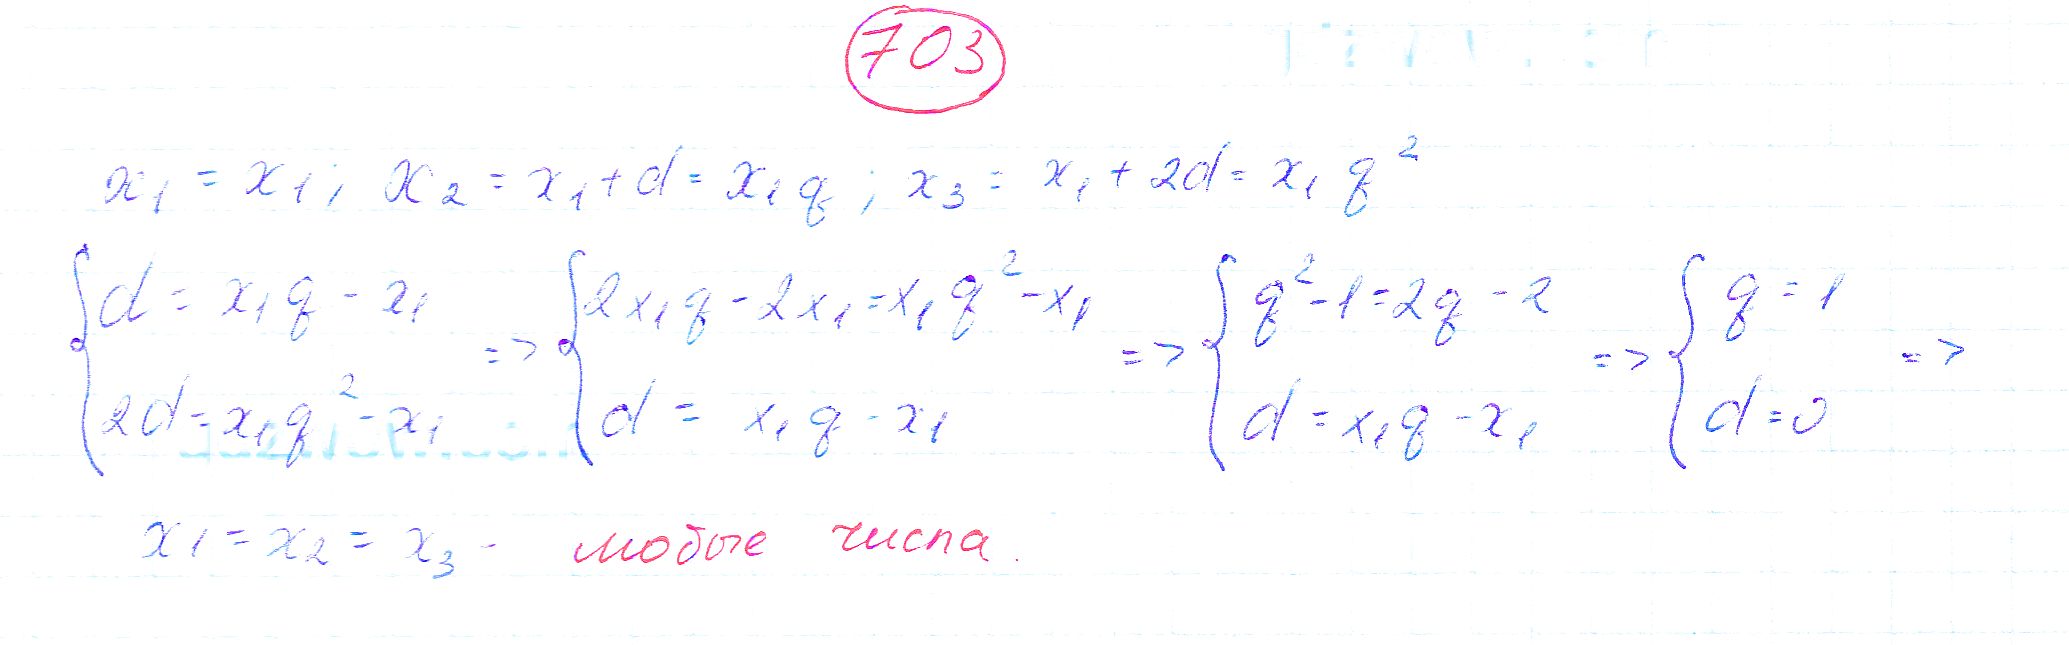 703
x₁ = x₁; x₂ = x₁ + d = x₁q; x₃ = x₁ + 2d = x₁q²
{ d = x₁q - x₁ { 2x₁q - 2x₁ = x₁q² - x₁ { q² - 1 = 2q - 2 { q = 1
=> => => =>
2d = x₁q² - x₁ d = x₁q - x₁ d = x₁q - x₁ d = 0
x₁ = x₂ = x₃ - любые числа.